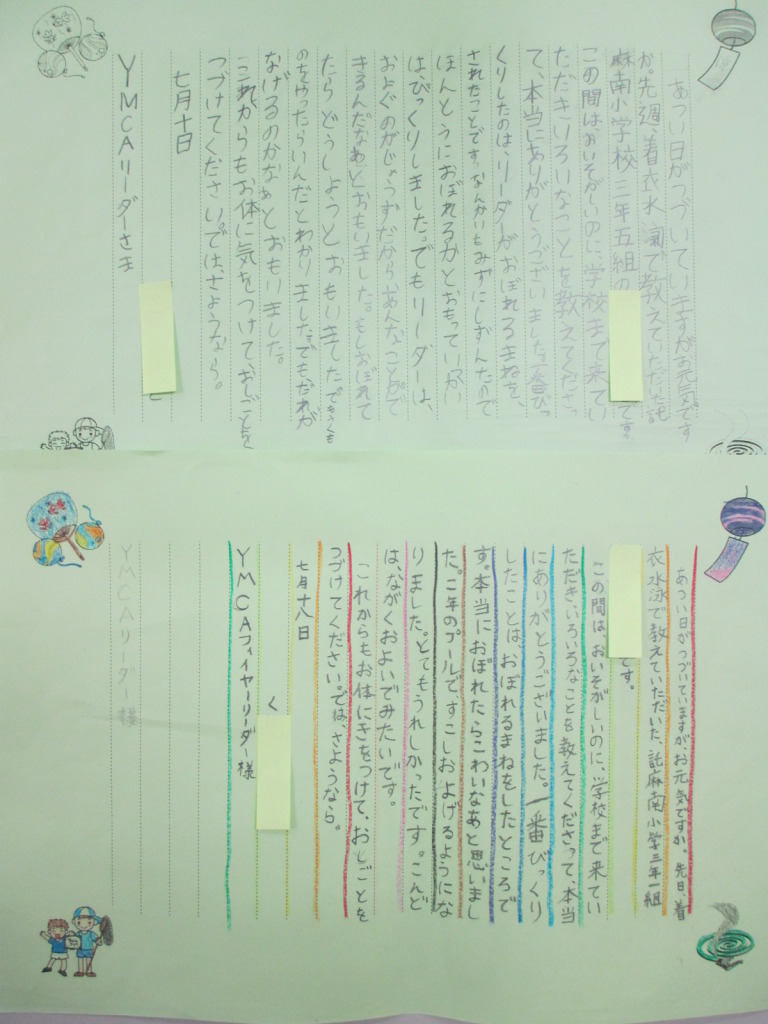 あつい日がつづいていますがお元気です
か。先週、着衣水泳で教えていただいた託
麻南小学校三年五組の です。
この間は、おいそがしいのに、学校まで来てい
ただきいろいなことを教えてくださっ
て、本当にありがとうございました。一番びっ
くりしたのは、リーダーがおぼれるまねを、
されたことです。なんかいもみずにしずんたので
ほんとうにおぼれるかとおもっていっかい
は、びっくりしました。でもリーダーは、
およぐのがじょうずだからあんなことがで
きるんだなあとおもいました。もしおぼれて
たらどうしようとおもいました。でも
のをやったらいんだとわかりました。でもだれが
なげるのかなぁとおもいました。
これからもお体に気をつけておしごとを
つづけてください。では、さようなら。
七月十日
YMCAリーダーさま
あつい日がつづいていますが、お元気ですか。先日、着
衣水泳で教えていただいた、託麻南小学三年一組
です。
この間は、おいそがしいのに、学校まで来てい
ただき、いろいろなことを教えてくださって、本当
にありがとうございました。一番びっくり
したことは、おぼれるまねをしたところで
す。本当におぼれたらこわいなあと思いまし
た。二年のプールで、すこしおよげるようにな
りました。とてもうれしかったです。こんど
は、ながくおよいでみたいです。
これからもお体にきをつけて、おしごとを
つづけてください。では、さようなら。
七月十八日
く
YMCAファイヤーリーダー様
YMCAリーダー様